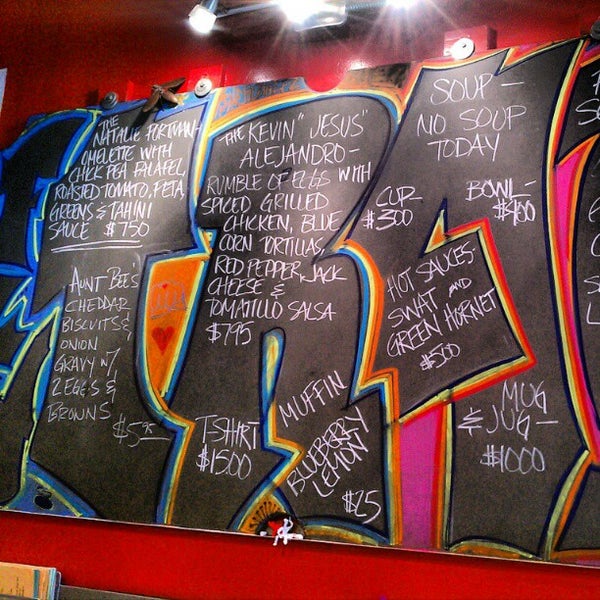 THE
NATALIE PORTMAN-
OMELETTE WITH
CHICK PEA FALAFEL,
ROASTED TOMATO, FETA,
GREENS & TAHINI
SAUCE $750
AUNT BEE'S
CHEDDAR
BISCUITS &
ONION
GRAVY W/
2 EGGS &
BROWNS
$5.95
THE KEVIN "JESUS"
ALEJANDRO-
RUMBLE OF EGGS WITH
SPICED GRILLED
CHICKEN, BLUE
CORN TORTILLAS,
RED PEPPER, JACK
CHEESE &
TOMATILLO SALSA
$795
T-SHIRT
$15.00
MUFFIN
BLUEBERRY
LEMON
$25
SOUP-
NO SOUP
TODAY
CUP-
$300
BOWL-
$400
HOT SAUCES-
SWAT AND
GREEN HORNET
$500
MUG
& JUG-
$1000